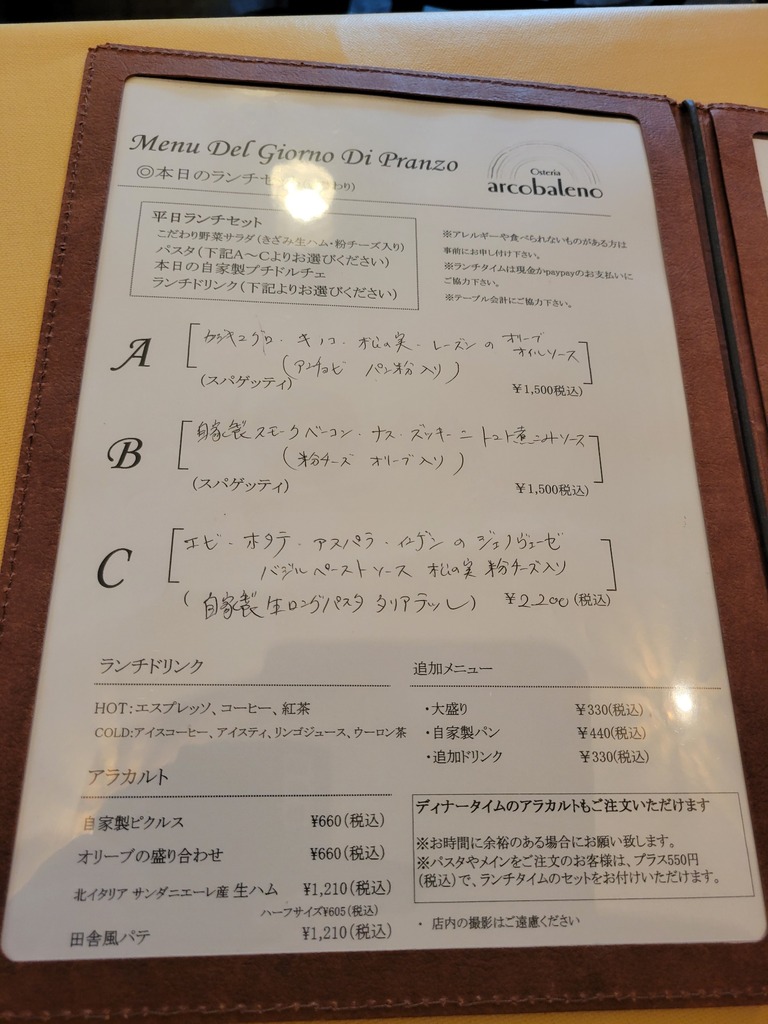 Menu Del Giorno Di Pranzo
Osteria
arcobaleno
◎本日のランチセ わり)
平日ランチセット
こだわり野菜サラダ(きざみ生ハム・粉チーズ入り)
パスタ(下記A～Cよりお選びください)
本日の自家製プチドルチェ
ランチドリンク(下記よりお選びください)
※アレルギーや食べられないものがある方は
事前にお申し付け下さい。
※ランチタイムは現金かpaypayのお支払いに
ご協力下さい。
※テーブル会計にご協力下さい。
A
カジキマグロ・キノコ・松の実・レーズンの オリーブ
オイルソース
(アンチョビ パン粉入り)
(スパゲッティ)
¥1,500税込)
B
自家製スモークベーコン・ナス・ズッキーニ トマト煮込みソース
(粉チーズ オリーブ入り)
(スパゲッティ)
¥1,500税込)
C
エビ・ホタテ・アスパラ・インゲンのジェノヴェーゼ
バジルペーストソース 松の実 粉チーズ入り
(自家製生ロングパスタ タリアテッレ) ¥2200(税込)
ランチドリンク
HOT:エスプレッソ、コーヒー、紅茶
COLD:アイスコーヒー、アイスティ、リンゴジュース、ウーロン茶
追加メニュー
・大盛り ¥330(税込)
・自家製パン ¥440(税込)
・追加ドリンク ¥330(税込)
アラカルト
自家製ピクルス ¥660(税込)
オリーブの盛り合わせ ¥660(税込)
北イタリア サンダニエーレ産 生ハム ¥1,210(税込)
ハーフサイズ¥605(税込)
田舎風パテ ¥1,210(税込)
ディナータイムのアラカルトもご注文いただけます
※お時間に余裕のある場合にお願い致します。
※パスタやメインをご注文のお客様は、プラス550円
(税込)で、ランチタイムのセットをお付けいただけます。
・ 店内の撮影はご遠慮ください